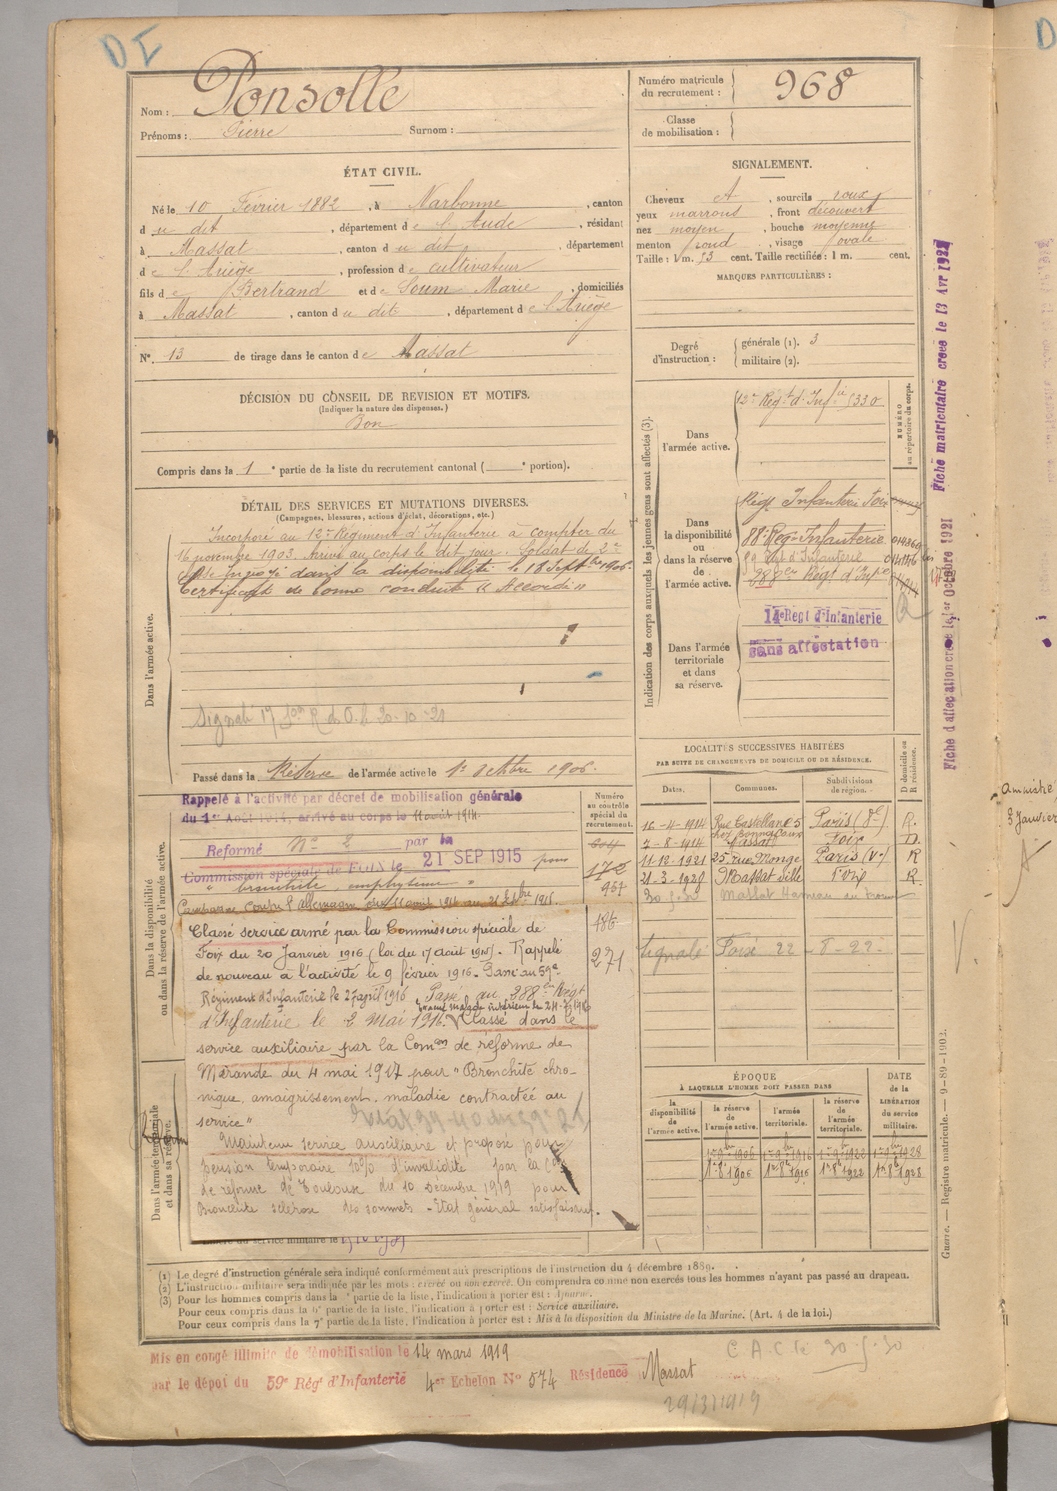 DI
Nom : Ponsolle
Prénoms : Pierre Surnom :
Numéro matricule du recrutement : 968
Classe de mobilisation :
ÉTAT CIVIL.
Né le 10 Février 1882, à Narbonne, canton
du dit, département de l'Aude, résidant
à Massat, canton du dit, département
de l'Ariège, profession de cultivateur
fils de Bertrand et de Soum Marie, domiciliés
à Massat, canton du dit, département de l'Ariège
N°. 13 de tirage dans le canton de Massat
SIGNALEMENT.
Cheveux A, sourcils roux
yeux marrons, front découvert
nez moyen, bouche moyenne
menton rond, visage ovale
Taille : 1 m. 53 cent. Taille rectifiée : 1 m. cent.
MARQUES PARTICULIÈRES :
Degré d'instruction : générale (1). 3
militaire (2).
DÉCISION DU CONSEIL DE REVISION ET MOTIFS.
(Indiquer la nature des dispenses.)
Bon
Compris dans la 1e partie de la liste du recrutement cantonal ( e portion).
DÉTAIL DES SERVICES ET MUTATIONS DIVERSES.
(Campagnes, blessures, actions d'éclat, décorations, etc.)
Dans l'armée active.
Incorporé au 12e Régiment d'Infanterie à compter du
16 novembre 1903. Arrivé au corps le dit jour. Soldat de 2e
classe. Envoyé dans la disponibilité le 18 Septbre 1906.
Certificat de bonne conduite "Accordé"
20-10-21
Passé dans la Réserve de l'armée active le 1er Octbre 1906.
Indication des corps auxquels les jeunes gens sont affectés (3).
NUMÉRO au répertoire du corps.
Dans l'armée active.
12e Régt d'Infie 5330
Dans la disponibilité ou dans la réserve de l'armée active.
Régt Infanterie Foix
88e Reg. Infanterie
59 Régt d'Infanterie
288e Régt d'Infie
Dans l'armée territoriale et dans sa réserve.
14e Régt d'Infanterie
sans affectation
Fiche matriculaire créée le 13 Avr 1921
Fiche d'affectation créée le 1er Octobre 1921
Dans la disponibilité ou dans la réserve de l'armée active.
Numéro au contrôle spécial du recrutement.
Rappelé à l'activité par décret de mobilisation générale
du 1er Août 1914, arrivé au corps le 11 août 1914.
Reformé N° 2 par la
Commission spéciale de FOIX le 21 SEP 1915 pour
"bronchite emphysème"
Campagne contre l'Allemagne du 11 août 1914 au 21 Septbre 1915.
957
186
271
Classé service armé par la Commission spéciale de
Foix du 20 Janvier 1916 (loi du 17 août 1915). Rappelé
de nouveau à l'activité le 9 février 1916. Passé au 59e
Régiment d'Infanterie le 27 avril 1916. Passé au 288e Régt
d'Infanterie le 2 Mai 1916. Classé dans le
service auxiliaire par la Comon de réforme de
Mirande du 4 mai 1917 pour "Bronchite chro-
nique, amaigrissement, maladie contractée au
service"
Maintenu service auxiliaire et proposé pour
pension temporaire 10% d'invalidité par la Con
de réforme de Toulouse du 10 décembre 1919 pour
Bronchite sclérose des sommets - Etat général satisfaisant.
Dans l'armée territoriale et dans sa réserve.
LOCALITÉS SUCCESSIVES HABITÉES
PAR SUITE DE CHANGEMENTS DE DOMICILE OU DE RÉSIDENCE.
Dates. Communes. Subdivisions de région. D domicile ou R résidence.
16-4-1914 Rue Castellane 5 Paris (8e) R.
7-8-1914 Massat Foix D.
11-12-1921 25, rue Monge Paris (Ve) R
21-3-1928 Massat Foix R
Signalé Foix 22-8-22
ÉPOQUE
À LAQUELLE L'HOMME DOIT PASSER DANS
DATE de la LIBÉRATION du service militaire.
la disponibilité de l'armée active. la réserve de l'armée active. l'armée territoriale. la réserve de l'armée territoriale.
Guerre. — Registre matricule. — 9-89-1902.
(1) Le degré d'instruction générale sera indiqué conformément aux prescriptions de l'instruction du 4 décembre 1889.
(2) L'instruction militaire sera indiquée par les mots : exercé ou non exercé. On comprendra comme non exercés tous les hommes n'ayant pas passé au drapeau.
(3) Pour les hommes compris dans la partie de la liste, l'indication à porter est : Ajourné.
Pour ceux compris dans la partie de la liste, l'indication à porter est : Service auxiliaire.
Pour ceux compris dans la 7e partie de la liste, l'indication à porter est : Mis à la disposition du Ministre de la Marine. (Art. 4 de la loi.)
Mis en congé illimité de démobilisation le 14 mars 1919
par le dépôt du 59e Régt d'Infanterie 4er Echelon N° 574 Résidence Massat
C.A.C. le 30-5-30
29/3/1919